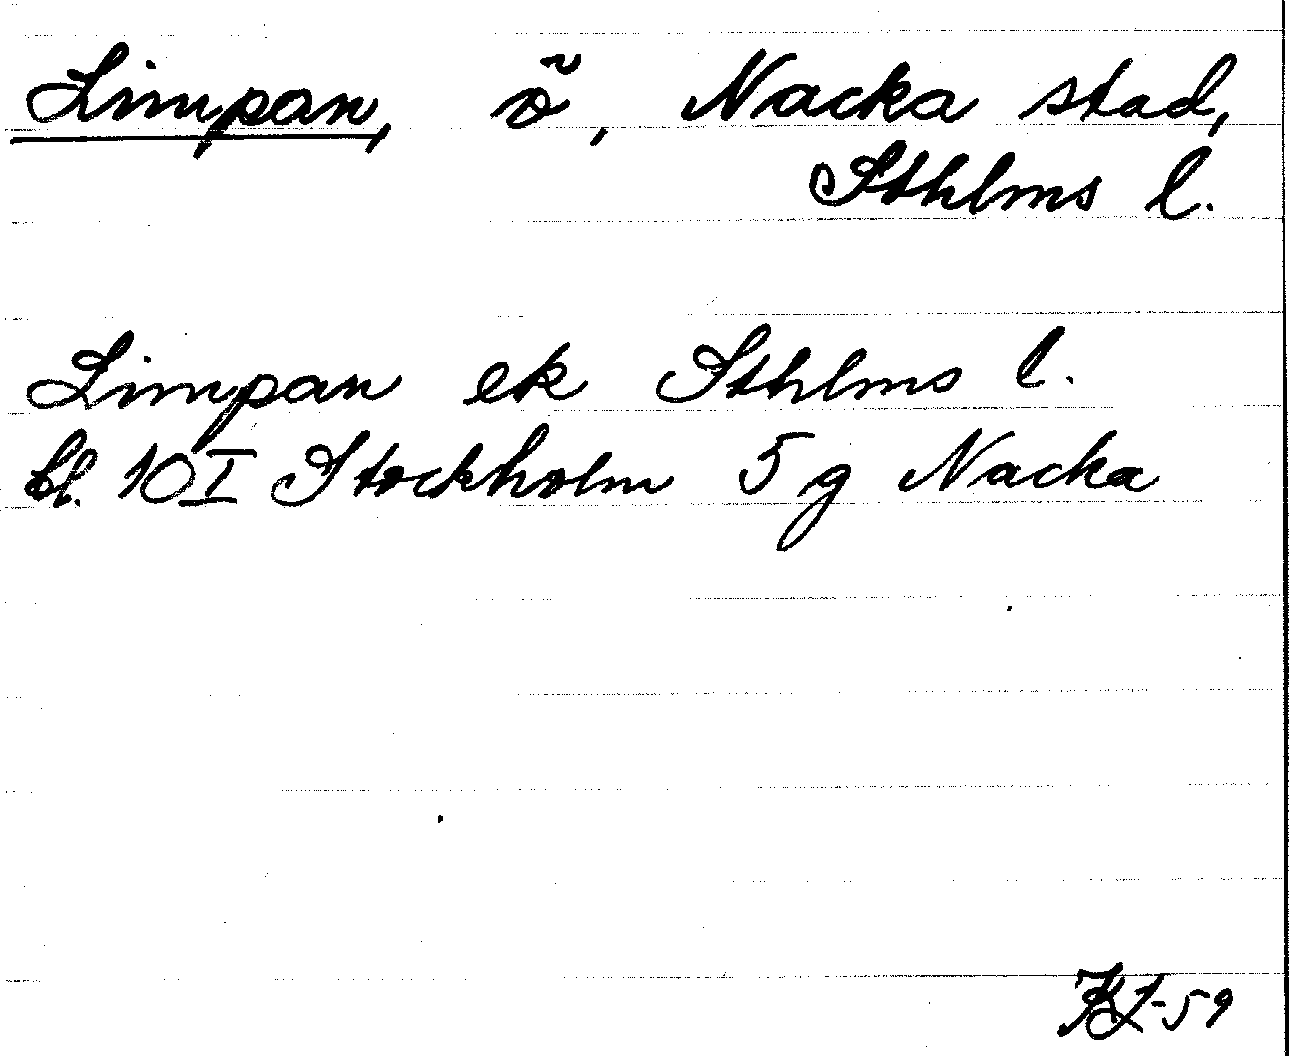 Limpan, ö, Nacka stad,
Sthlms l.
Limpan ek Sthlms l.
bl. 10 I Stockholm 5 g Nacka
-59